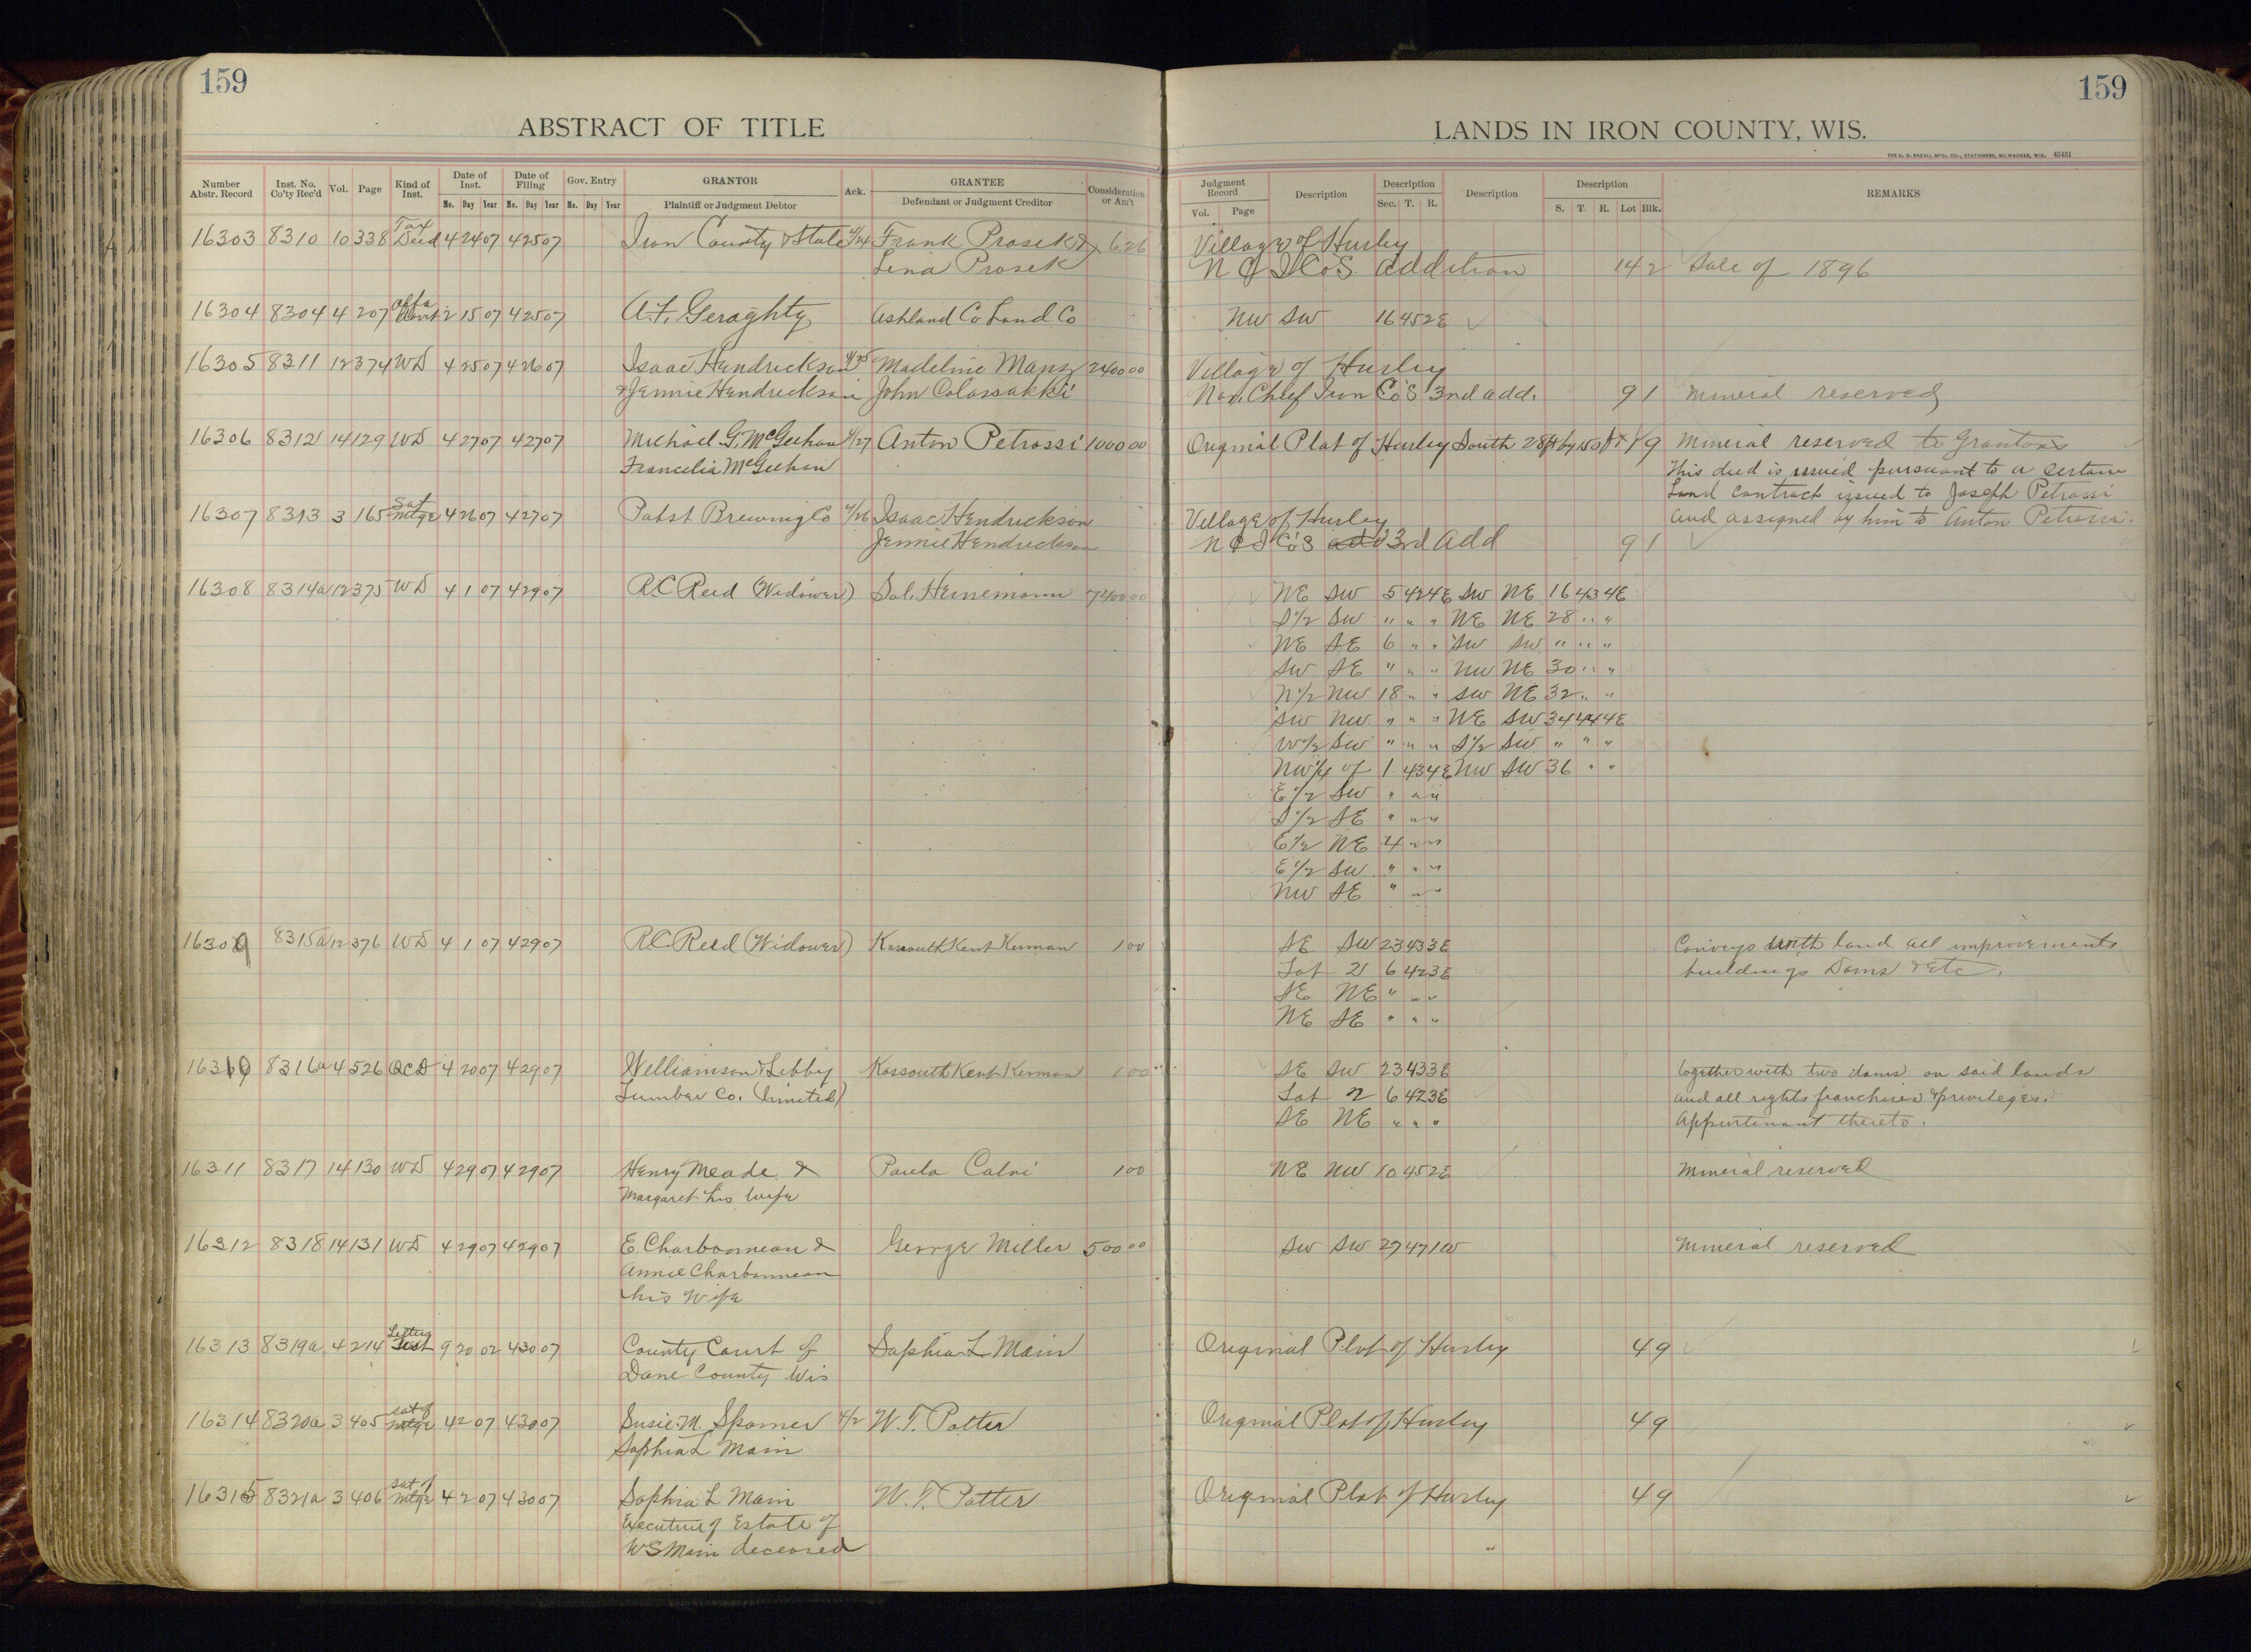 159
ABSTRACT OF TITLE
Number Abstr. Record
Inst. No. Co'ty Rec'd
Vol.
Page
Kind of Inst.
Date of Inst.
Date of Filing
Gov. Entry
GRANTOR
Plaintiff or Judgment Debtor
Ack.
GRANTEE
Defendant or Judgment Creditor
Consideration or Am't
Mo. Day Year Mo. Day Year Mo. Day Year
16303 8310 10 338 Tax Deed 4 24 07 4 25 07 Iron County & State 4/24 Frank Prosek & 6 26
Lena Prosek
16304 8304 4 207 4 25 07 A.F. Geraghty Ashland Co Land Co
16305 8311 12 374 WD 4 25 07 4 26 07 Isaac Hendrickson 4/25 Madeline Manz 2400 00
& Jennie Hendrickson John Colassakki
16306 8312 14 129 WD 4 27 07 4 27 07 Michael G. McGeehan 4/27 Anton Petrossi 1000 00
Francelia McGeehan
16307 8313 3 165 Sat Mtge 4 26 07 4 27 07 Pabst Brewing Co 4/26 Isaac Hendrickson
Jennie Hendrickson
16308 8314a 12 375 WD 4 1 07 4 29 07 R.C. Reed (Widower) Sol. Heinemann 7200 00
16309 8315a 12 376 WD 4 1 07 4 29 07 R.C. Reed (Widower) Kossouth Kent Kennan 1 00
16310 8316a 4 526 QCD 4 20 07 4 29 07 Williamson & Libby Kossouth Kent Kennan 1 00
Lumber Co. (Limited)
16311 8317 14 130 WD 4 29 07 4 29 07 Henry Meade & Paula Calvi 1 00
Margaret his wife
16312 8318 14 131 WD 4 29 07 4 29 07 E Charbonneau & George Miller 500 00
Annie Charbonneau
his Wife
16313 8319a 4 214 Letters Test 9 20 02 4 30 07 County Court of Sophia L Main
Dane County Wis
16314 8320a 3 405 Sat of Mtge 4 2 07 4 30 07 Susie M. Spooner 4/2 W.T. Potter
Sophia L Main
16315 8321a 3 406 Sat of Mtge 4 2 07 4 30 07 Sophia L Main W.T. Potter
Executrix of Estate of
WS Main deceased
159
LANDS IN IRON COUNTY, WIS.
THE H. G. RAZALL MFG. CO., STATIONERS, MILWAUKEE, WIS. 45431
Judgment Record
Vol. Page
Description
Description
Sec. T. R.
Description
Description
S. T. R. Lot Blk.
REMARKS
Village of Hurley
N C I Co's addition 14 2 Sale of 1896
NW SW 16 45 2E
Village of Hurley
Nor. Chief Iron Co's 3rd add. 9 1 Mineral reserved
Original Plat of Hurley South 28 ft by 150 ft 9 Mineral reserved to Grantors
This deed is issued pursuant to a certain
Land contract issued to Joseph Petrossi
and assigned by him to Anton Petrossi.
Village of Hurley
N C I Co's add 3rd add 9 1
NE SW 5 42 4E SW NE 16 43 4E
S 1/2 SW " " " NE NE 28 " "
NE SE 6 " " SW SW " " "
SW SE " " " NW NE 30 " "
N 1/2 NW 18 " " SW NE 32 " "
SW NW " " " NE SW 34 44 4E
W 1/2 SW " " " S 1/2 SW " " "
NW 1/4 of 1 43 4E NW SW 36 " "
E 1/2 SW " " "
S 1/2 SE " " "
E 1/2 NE 4 " "
E 1/2 SW " " "
NW SE " " "
SE SW 23 43 3E Conveys with land all improvements
Lot 2 6 42 3E buildings Dams & Etc.
SE NE " " "
NE SE " " "
SE SW 23 43 3E together with two dams on said lands
Lot 2 6 42 3E and all rights franchises & privileges.
SE NE " " " Appurtenant thereto.
NE NW 10 45 2E Mineral reserved
SW SW 27 47 1W Mineral reserved
Original Plat of Hurley 4 9
Original Plat of Hurley 4 9
Original Plat of Hurley 4 9